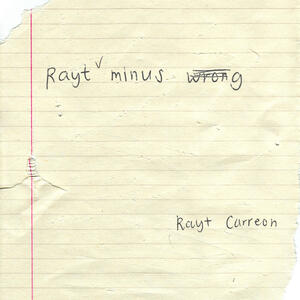 Rayt minus wrong
Rayt Carreon